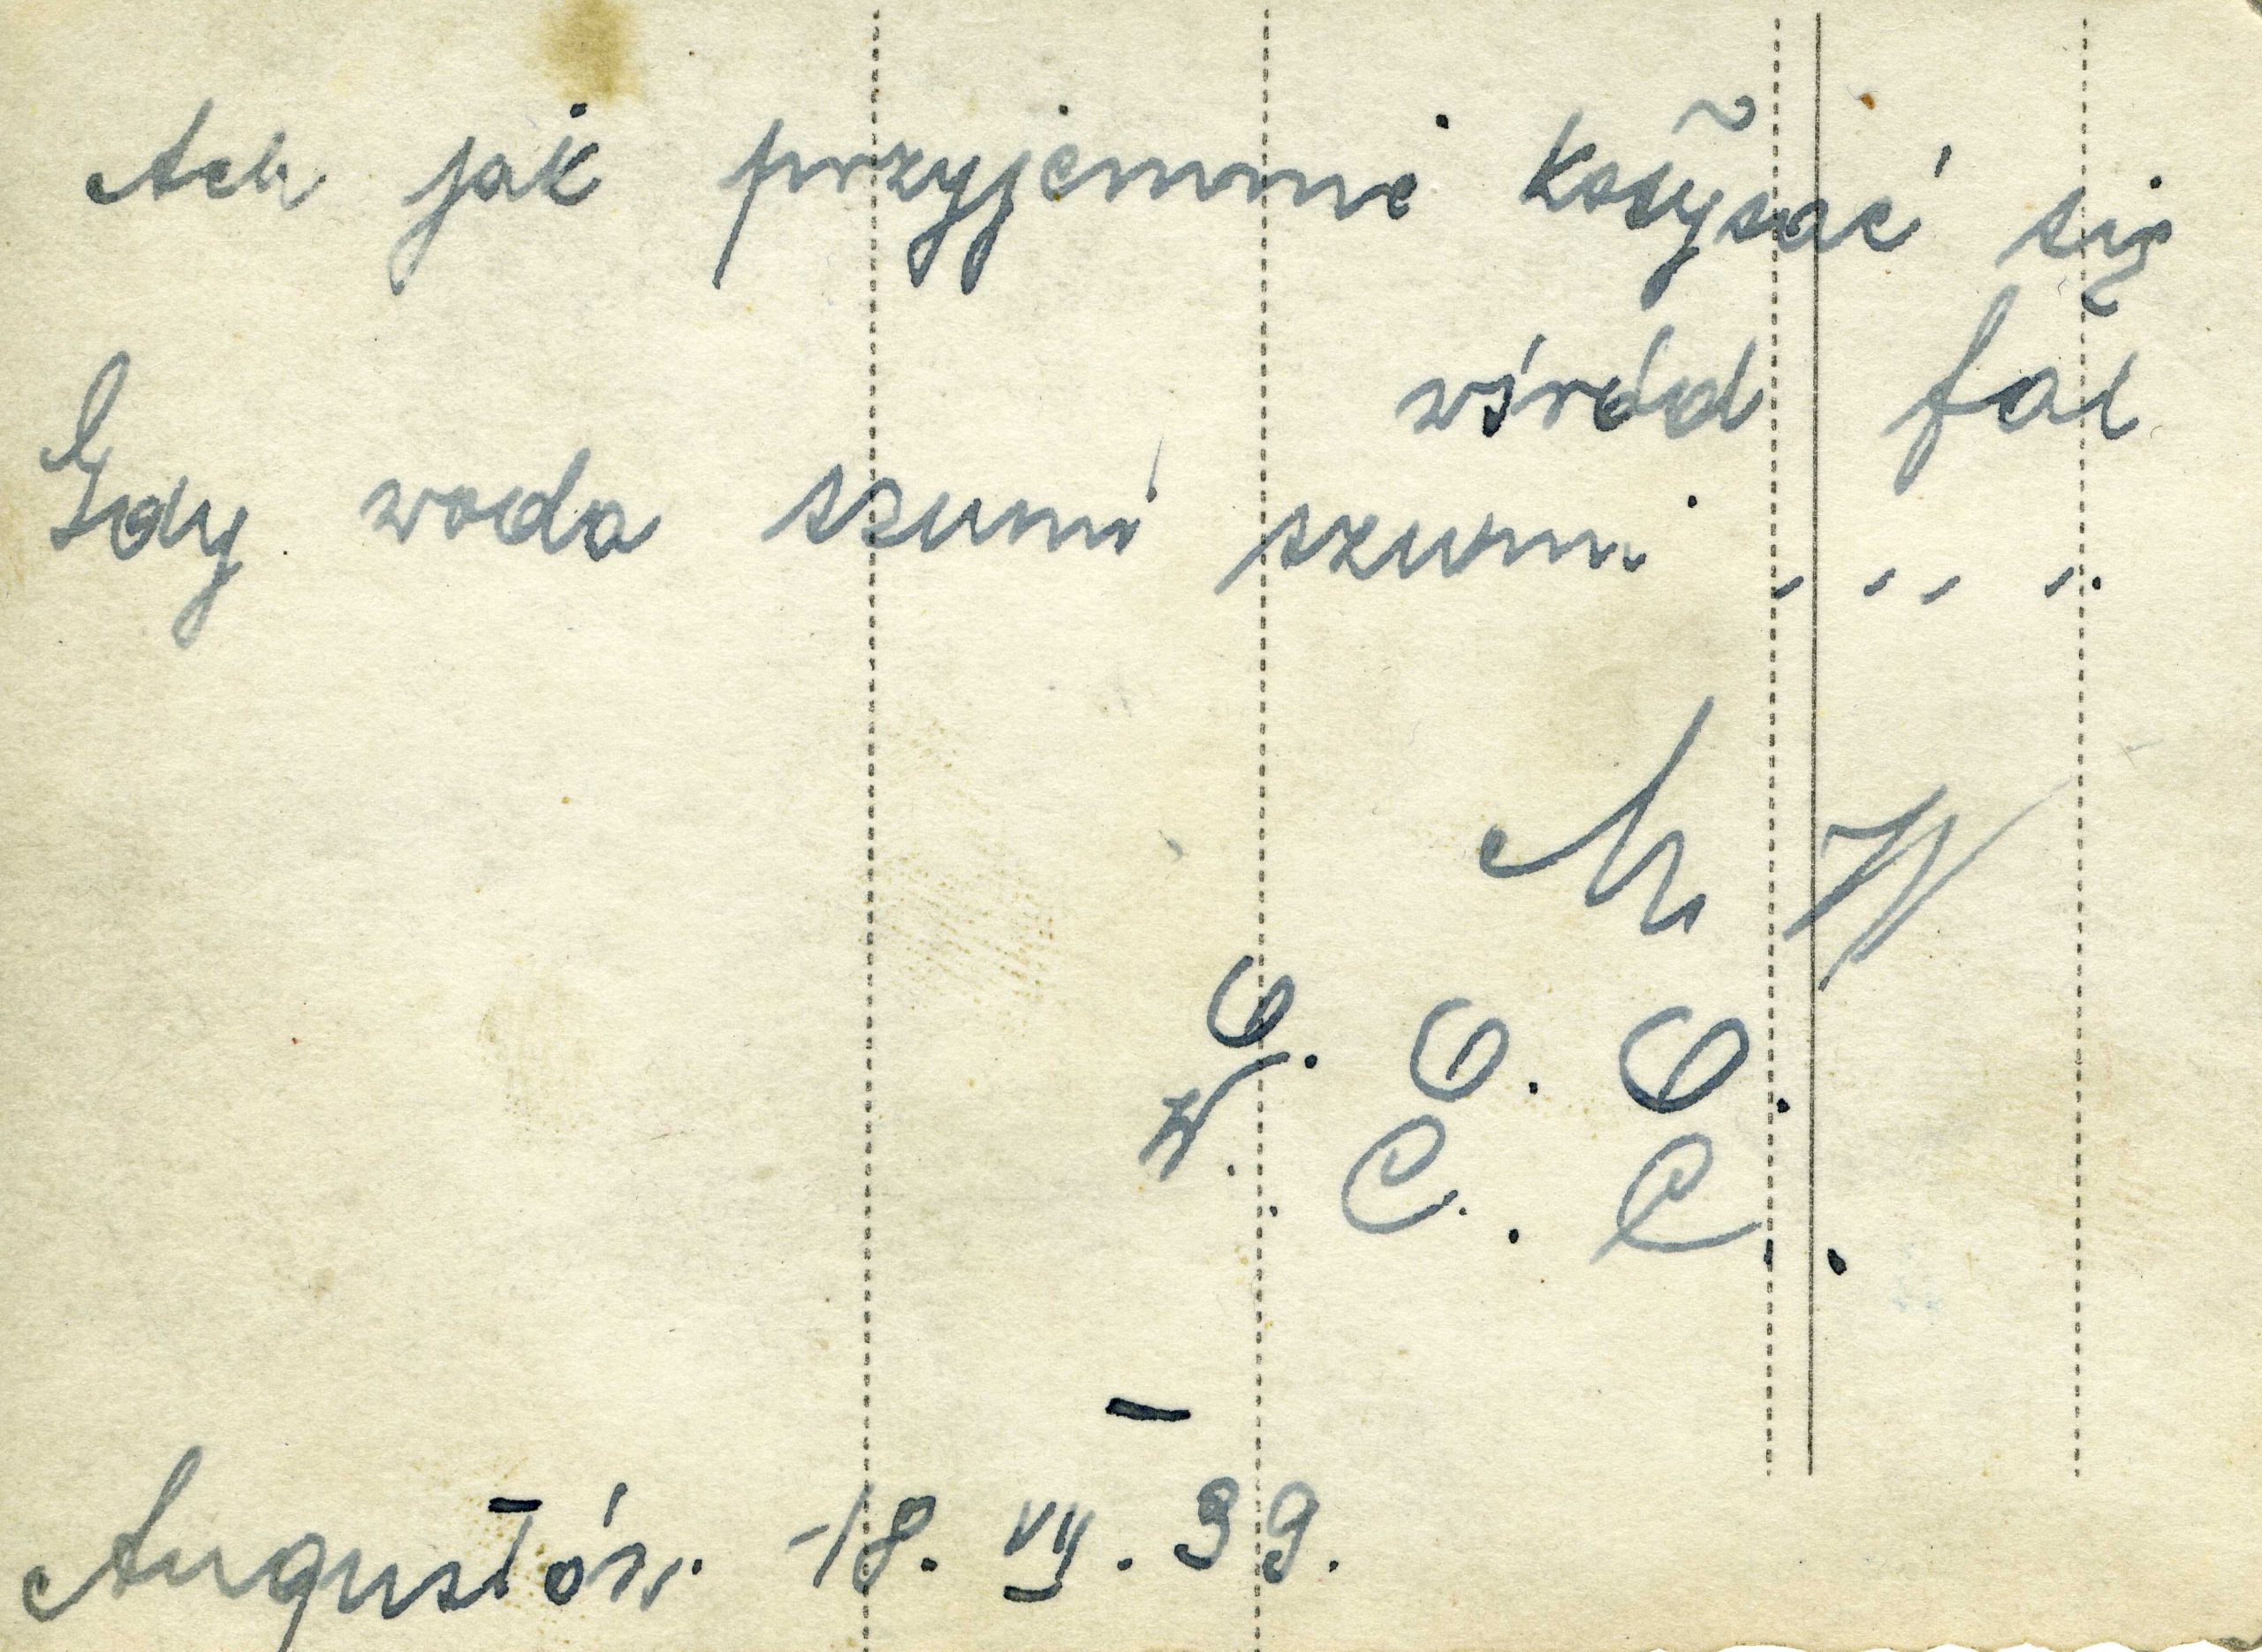 Ach jak przyjemnie kołysać się
wśród fal
Gdy woda szumi szumi . . . .
M W
G. G. G.
W. C. C.
Augustów. 18. VII. 39.